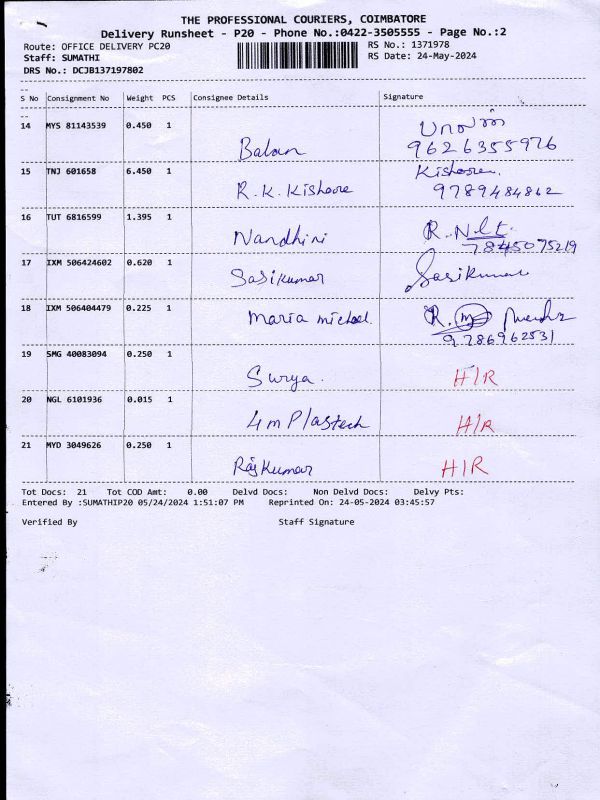 THE PROFESSIONAL COURIERS, COIMBATORE
Delivery Runsheet - P20 - Phone No.:0422-3505555 - Page No.:2
Route: OFFICE DELIVERY PC20 RS No.: 1371978
Staff: SUMATHI RS Date: 24-May-2024
DRS No.: DCJB137197802
S No Consignment No Weight PCS Consignee Details Signature
14 MYS 81143539 0.450 1 Balan பாலன்
9626355976
15 TNJ 601658 6.450 1 R.K. Kishore Kishore
9789484862
16 TUT 6816599 1.395 1 Nandhini R.
7845075219
17 IXM 506424602 0.620 1 Sasikumar Sasikumar
18 IXM 506404479 0.225 1 Maria michael. R.
9786962531
19 SMG 40083094 0.250 1 Surya. H/R
20 NGL 6101936 0.015 1 4m Plastech H/R
21 MYD 3049626 0.250 1 Rajkumar H/R
Tot Docs: 21 Tot COD Amt: 0.00 Delvd Docs: Non Delvd Docs: Delvy Pts:
Entered By :SUMATHIP20 05/24/2024 1:51:07 PM Reprinted On: 24-05-2024 03:45:57
Verified By Staff Signature